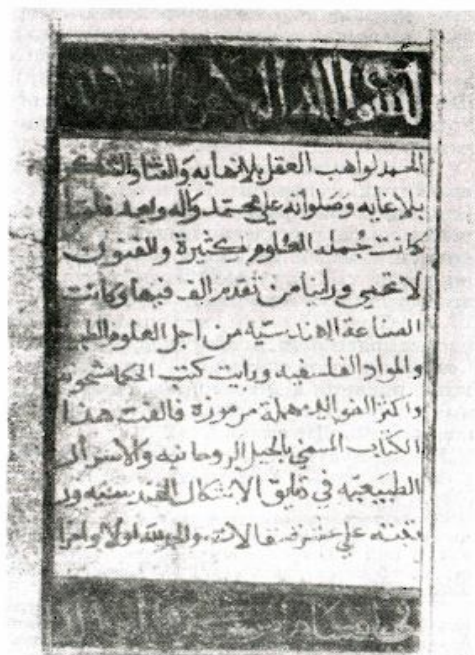 بسم الله الرحمن الرحيم
الحمد لواهب العقل بلا نهايه والثنا والشكر
بلا غايه وصلواته على محمد واله وبعد فلما
كانت جملة العلوم كثيرة والفنون
لا تحصى وراينا من تقدم الف فيها وكانت
الصناعة الهندسيه من اجل العلوم الطبيعيه
والمواد الفلسفيه ورايت كتب الحكما مشحونه
واكثر الفوايد مهملة مرموزة فالفت هذا
الكتاب المسمى بالحيل الروحانيه والاسرار
الطبيعيه في دقايق الاشكال الهندسيه ور
تبته على عشر مقالات والحمد لله اولا واخرا